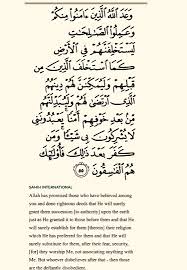 وَعَدَ ٱللَّهُ ٱلَّذِينَ ءَامَنُوا۟ مِنكُمْ
وَعَمِلُوا۟ ٱلصَّـٰلِحَـٰتِ
لَيَسْتَخْلِفَنَّهُمْ فِى ٱلْأَرْضِ
كَمَا ٱسْتَخْلَفَ ٱلَّذِينَ مِن
قَبْلِهِمْ وَلَيُمَكِّنَنَّ لَهُمْ دِينَهُمُ
ٱلَّذِى ٱرْتَضَىٰ لَهُمْ وَلَيُبَدِّلَنَّهُم مِّنۢ
بَعْدِ خَوْفِهِمْ أَمْنًا يَعْبُدُونَنِى
لَا يُشْرِكُونَ بِى شَيْـًٔا وَمَن
كَفَرَ بَعْدَ ذَٰلِكَ فَأُو۟لَـٰٓئِكَ
هُمُ ٱلْفَـٰسِقُونَ ٥٥
SAHIH INTERNATIONAL:
Allah has promised those who have believed among
you and done righteous deeds that He will surely
grant them succession [to authority] upon the earth
just as He granted it to those before them and that He
will surely establish for them [therein] their religion
which He has preferred for them and that He will
surely substitute for them, after their fear, security,
[for] they worship Me, not associating anything with
Me. But whoever disbelieves after that - then those
are the defiantly disobedient.